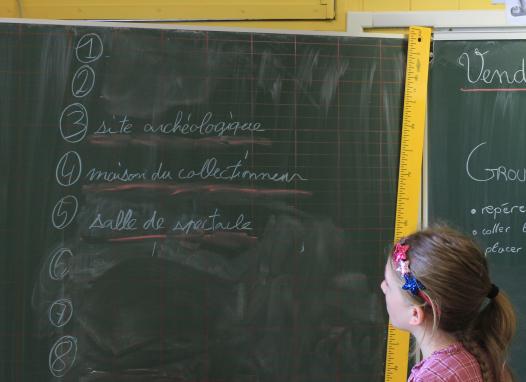 1
2
3 site archéologique
4 maison du collectionneur
5 salle de spectacle
6
7
8
Vend
GROU
• repére
• coller
placer